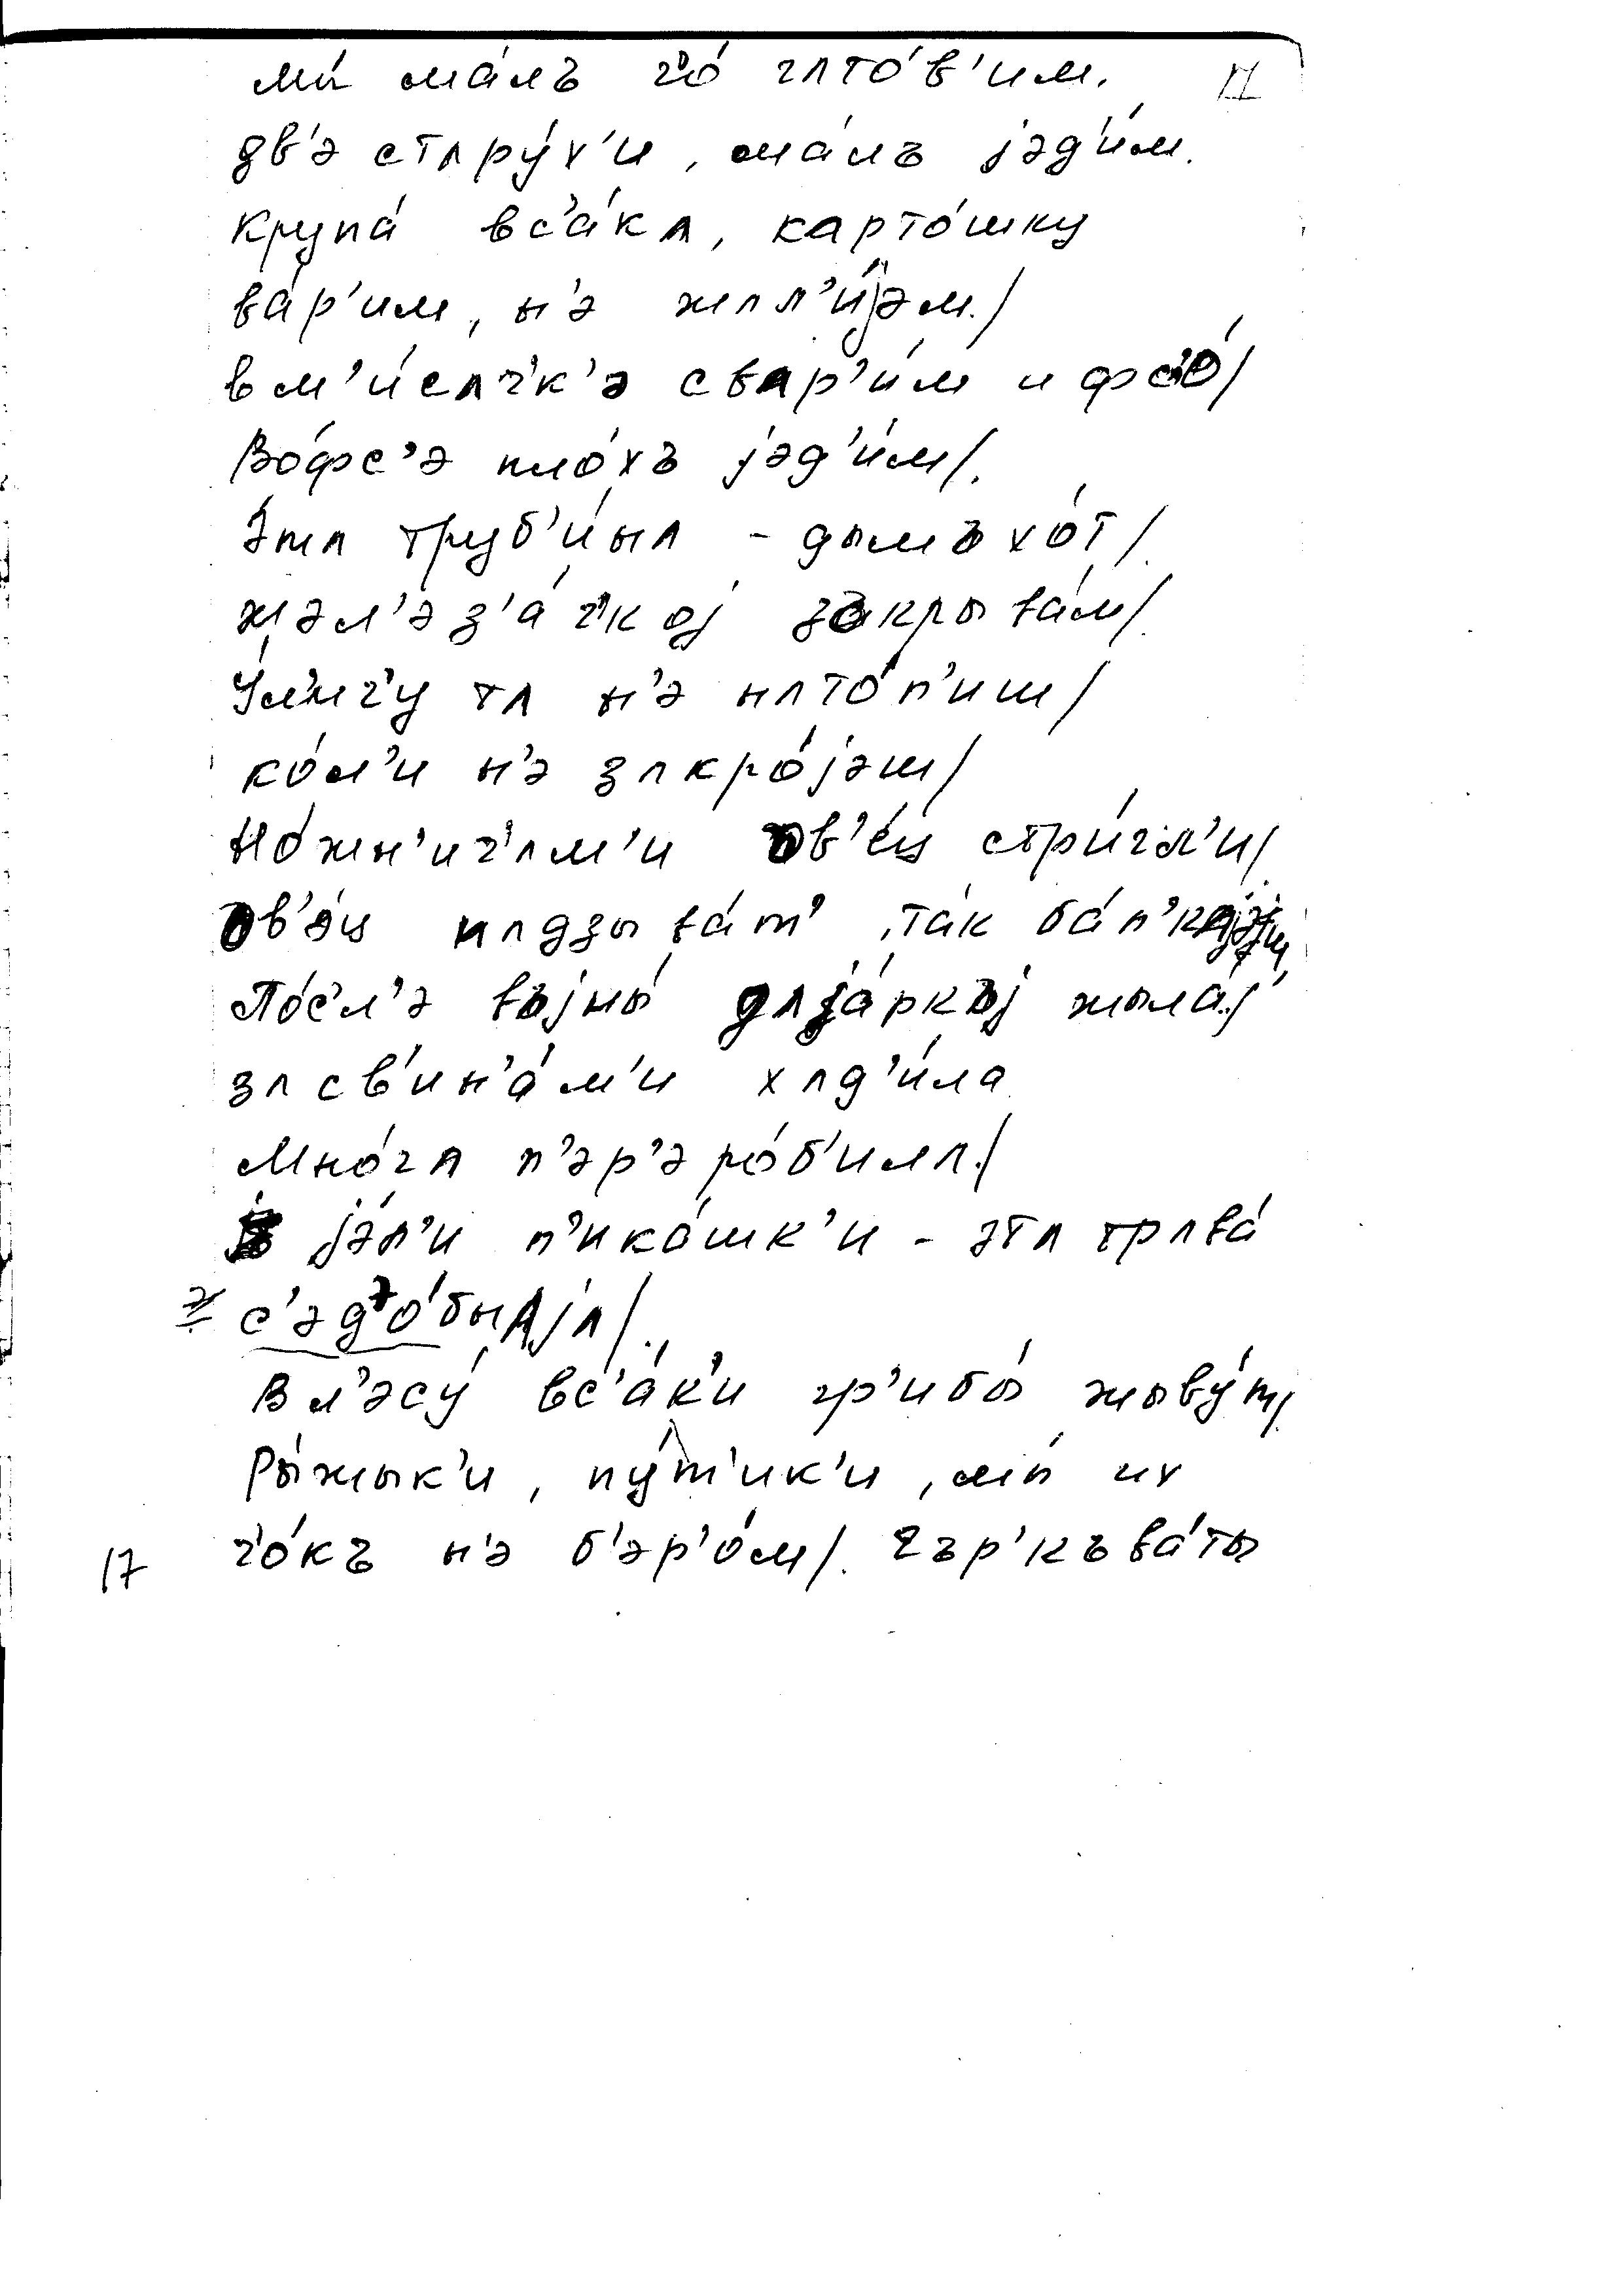 мы́ ма́лъ ч'о́ гʌто́в'им. 17
дв'э стʌру́х'и, ма́лъ jэд'и́м.
крупа́ вс'а́кʌ, карто́шку
ва́р'им, н'э жʌл'и́jэм./
в м'и́сʌч'к'э свар'и́м и фс'о́/
Во́фс'э пло́хъ jэд'и́м/.
э́тʌ труб'и́нʌ - дымъхо́т/.
жэл'эз'а́ч'коj закрыва́м/.
у́л'иц'у тʌ н'э нʌто́п'иш/
ко́л'и н'э зʌкро́jэш/
но́жн'иц'ʌм'и ов'е́ц стри́гл'и/.
ов'э́ц нʌдзыва́т', так ба́п'к
По́с'л'э въjны́ дʌjа́ркъj жыла́/.
зʌ св'ин'а́м'и хʌд'и́ла
мно́гʌ п'эр'эро́б'илʌ./
jэ́л'и п'ика́шк'и - э́тʌ трʌва́
с'эд'о́быʌjʌ/.
В л'эсу́ вс'а́к'и гр'ибы́ жыву́т/.
ры́жык'и, пу́т'ик'и, мы́ их
ч'о́къ н'э б'эр'о́м/. ч'ър'къва́ты
17